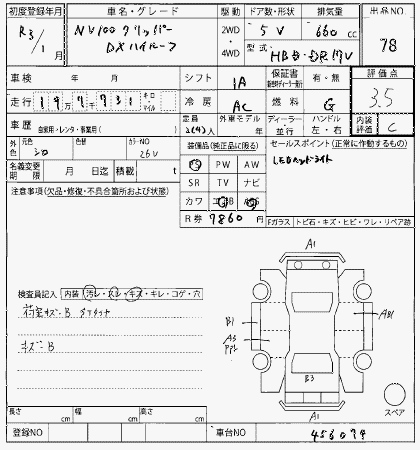 初度登録年月
車名・グレード
駆動
ドア数・形状
排気量
出品NO
R3/1月
NV100クリッパー
DXハイルーフ
2WD
・
4WD
5V
660 cc
型式・HBD-DR17V
78
車検 年 月
シフト
IA
保証書
有・無
評価点
3.5
走行
キロ・マイル
冷房
AC
燃料
G
車歴
自家用・レンタ・事業用( )
定員
2(4)人
外車モデル
年
ディーラー・並行
ハンドル
左・右
内装評価
C
外色
元色
シロ
色替
カラーNO
26U
名義変更期限
月 日迄
積載
t
装備品(純正品に限る)
PS PW AW
SR TV ナビ
カワ エアB ABS
R券 9860円
セールスポイント(正常に作動するもの)
LEDヘッドライト
注意事項(欠品・修復・不具合箇所および状態)
Fガラス トビ石・キズ・ヒビ・ワレ・リペア跡
検査員記入
内装 汚レ・スレ・キズ・キレ・コゲ・穴
荷室キズB
キズB
A1
B1
A3
AB1
B3
A1
スペア
長さ cm
幅 cm
高さ cm
登録NO
車台NO
456079